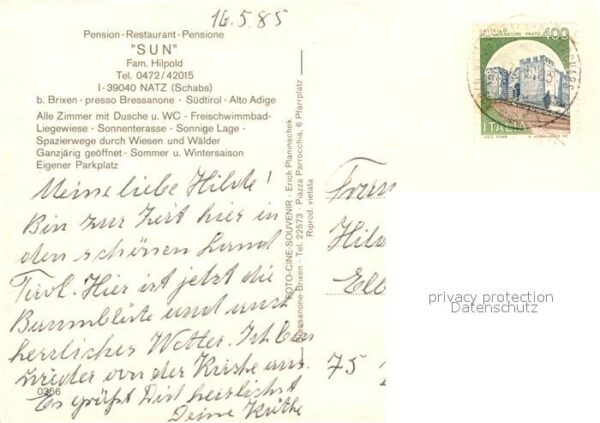 16.5.85
Pension-Restaurant-Pensione
"SUN"
Fam. Hilpold
Tel. 0472/42015
I-39040 NATZ (Schabs)
b. Brixen - presso Bressanone - Südtirol - Alto Adige
Alle Zimmer mit Dusche u. WC - Freischwimmbad-
Liegewiese - Sonnenterasse - Sonnige Lage -
Spazierwege durch Wiesen und Wälder
Ganzjärig geöffnet - Sommer u. Wintersaison
Eigener Parkplatz
Meine liebe Hilde!
Bin zur Zeit hier in
den schönen Land
Tirol. Hier ist jetzt die
Baumblüte und
herrliches Wetter. Ich bin
wieder von der Kirche aus.
Es grüßt Dich herzlichst
Deine Käthe
0356
FOTO-CINE-SOUVENIR - Erich Planinschek
Bressanone-Brixen - Tel. 22573 - Piazza Parrocchia, 6 Pfarrplatz
Riprod. vietata
400
ITALIA
75
privacy protection
Datenschutz